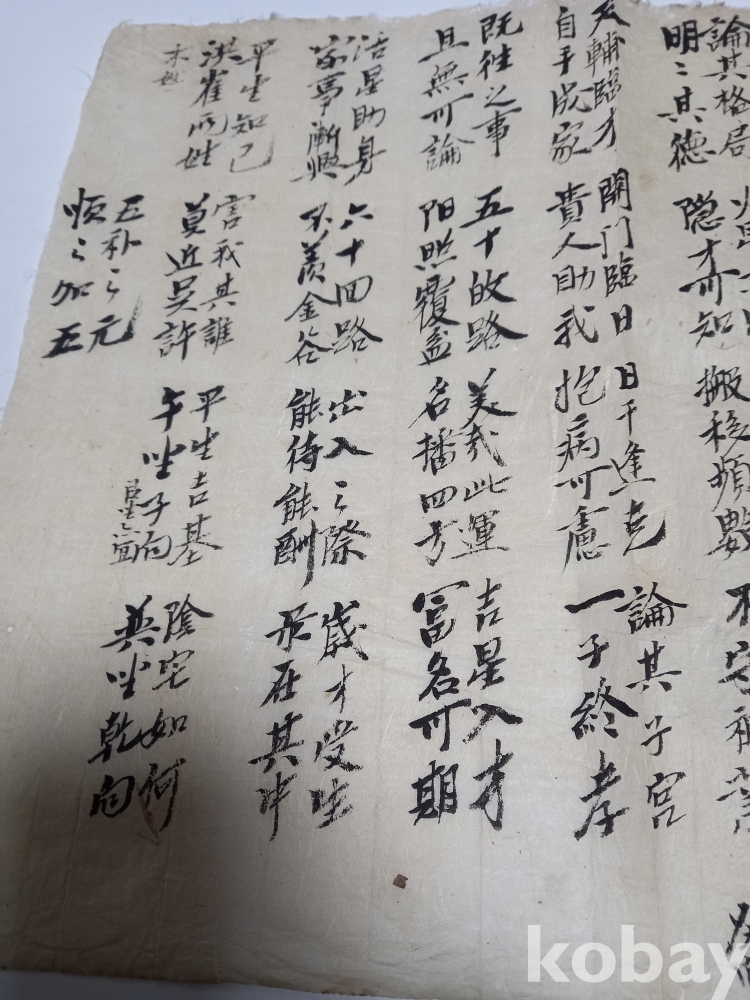 論其格局
明〻其德
隐才可知
搬移頻數
天輔臨才
自手成家
開门臨日
貴人助我
日干逢克
抱病可慮
論其子宮
一子終孝
既往之事
且無可論
五十故路
阳照覆盆
美哉此運
名播四方
吉星入才
冨名可期
活星助身
家事漸興
六十四路
不羨金谷
出入之際
能待能酬
歲才受生
在其中
平生知己
洪崔両姓
木姓
害我其誰
莫近吴許
平生吉基
午坐子向
陰宅如何
巽坐乾向
五补之元
順之加五
kobay